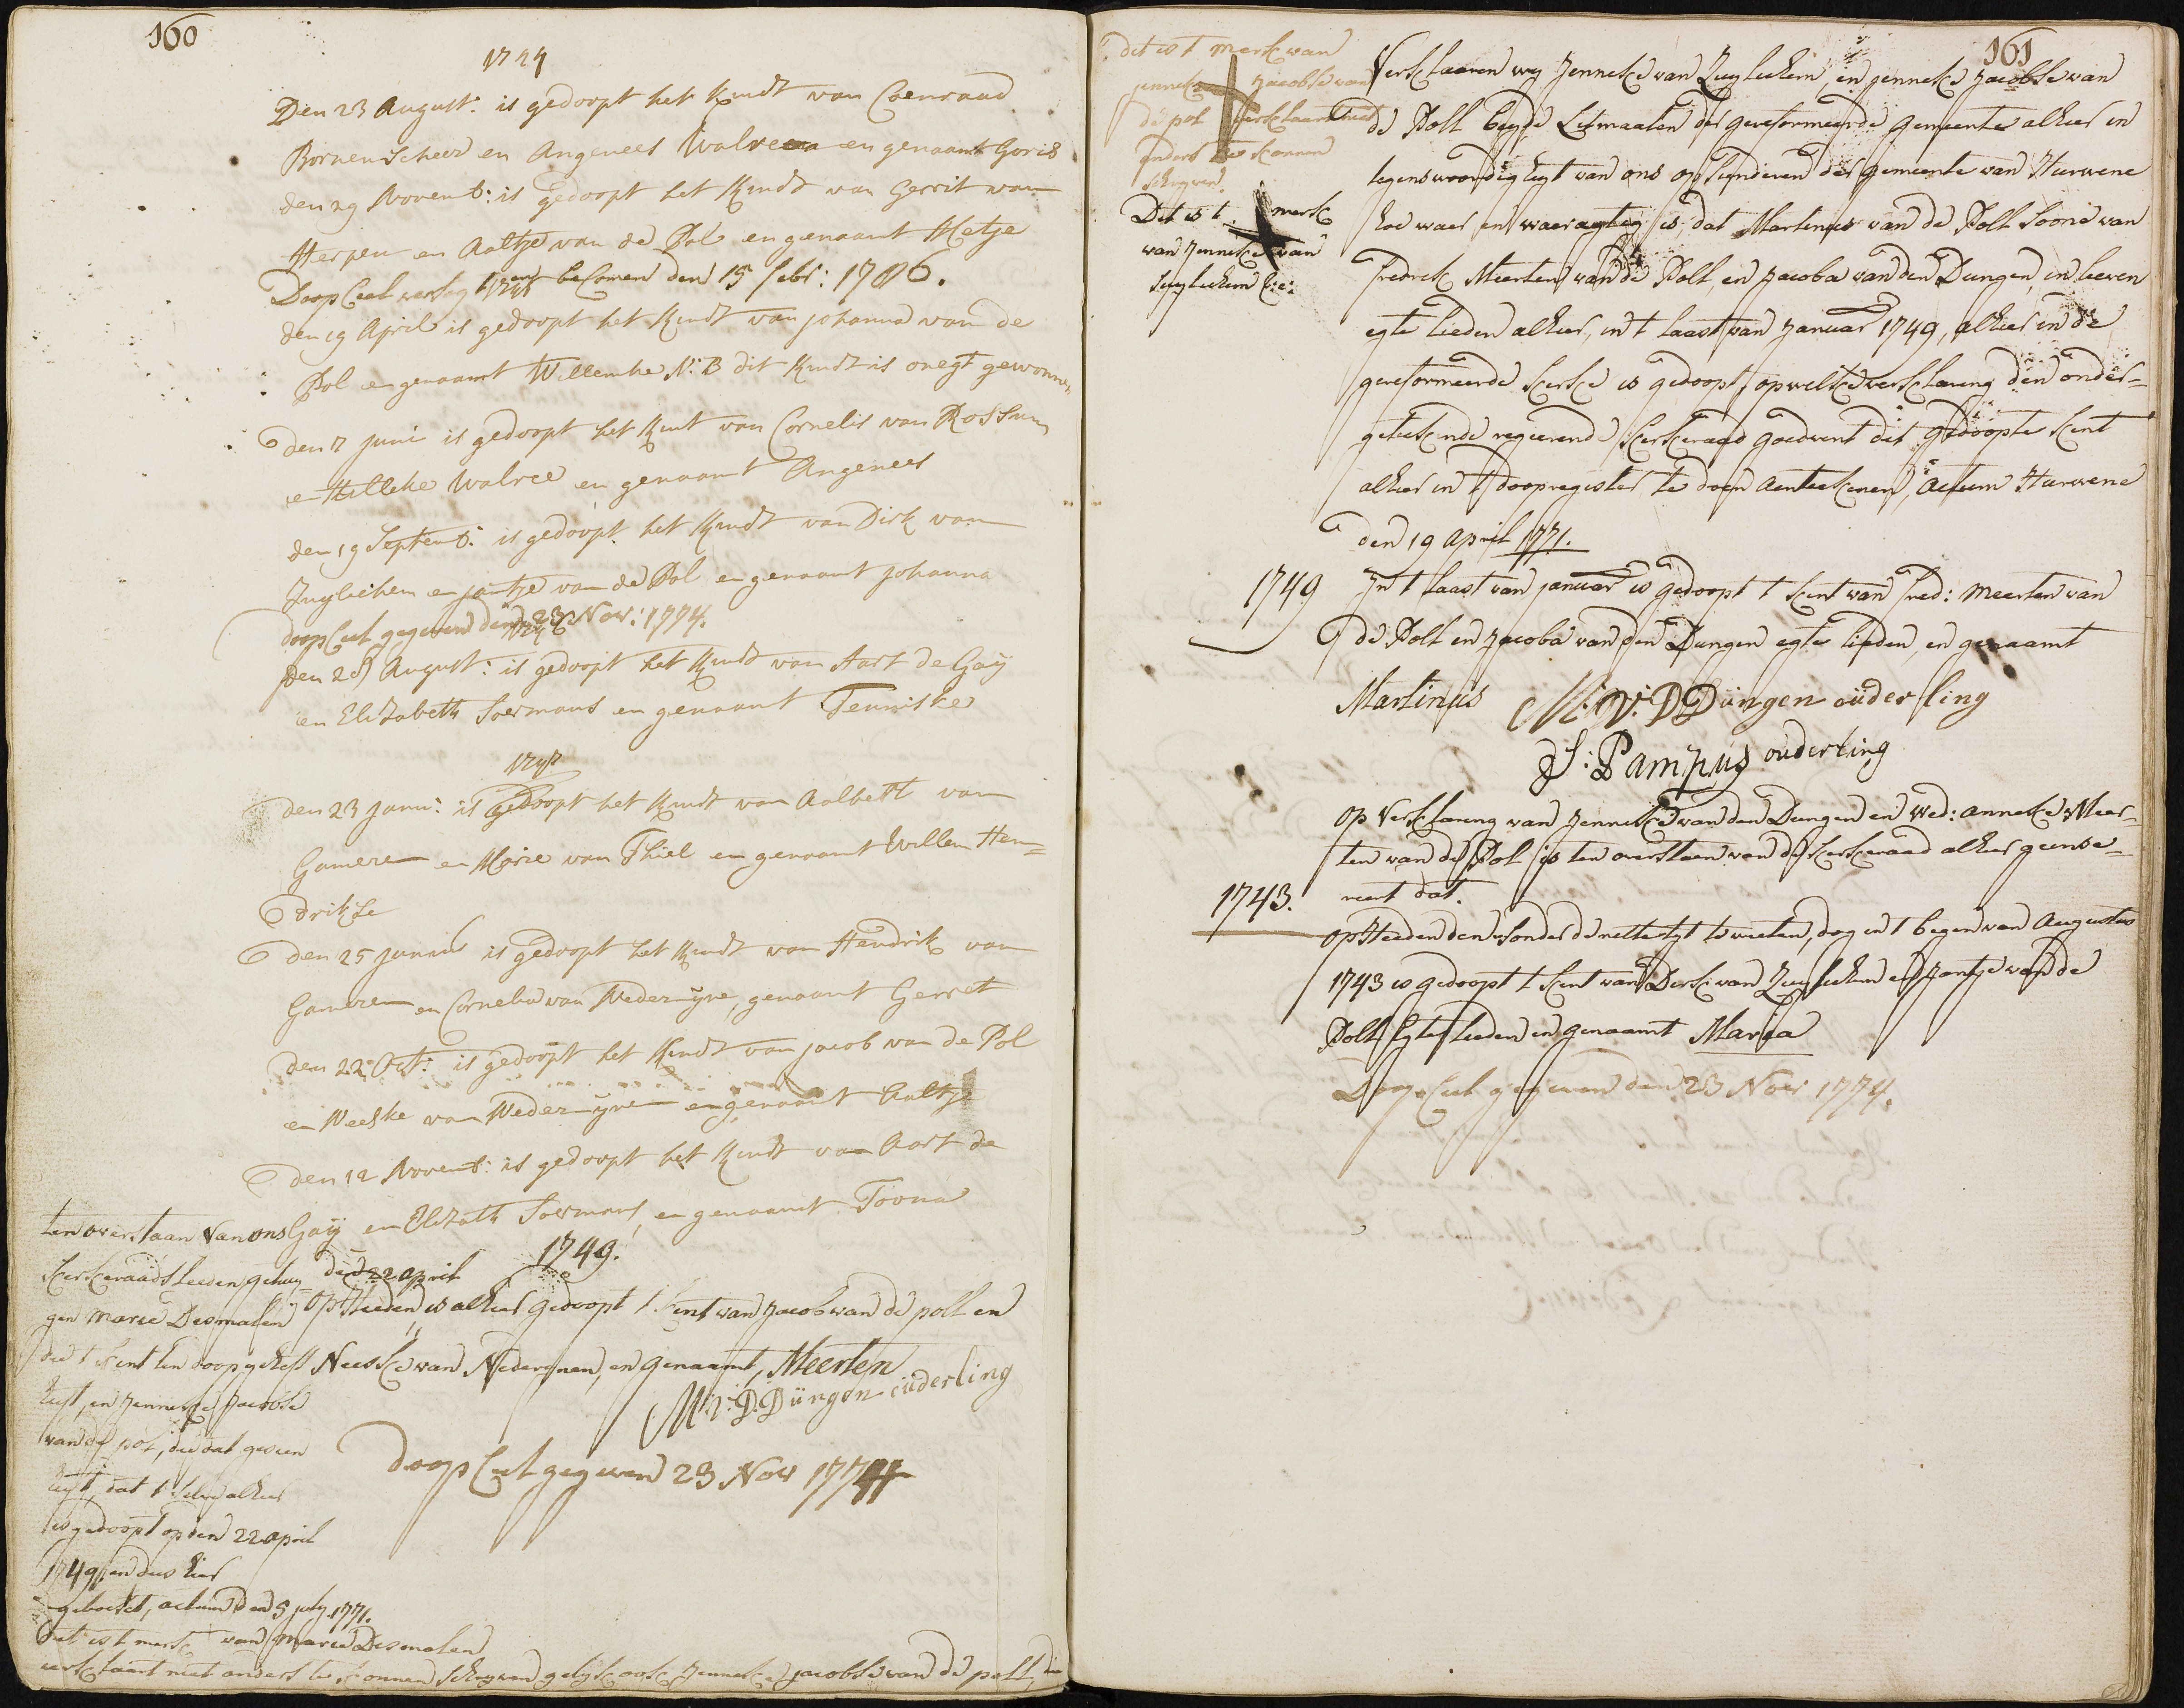 160
1744
Den 23 August: is gedoopt het Kindt van Coenraad
Bornenscheer en Angenees Walreea en genaamt Goris
den 29 Novemb: is gedoopt het Kindt van Gerrit van
Herpen en Aaltje van de Pol en genaamt Metje
Doop Ceel verleg en becomen den 15 febr: 1786.
1745
den 19 April is gedoopt het Kindt van johanna van de
Pol en genaamt Willemke N:B dit Kindt is onegt gewonnen
den 7 juni is gedoopt het Kint van Cornelis van Rossum
en Hilleke Walree en genaamt Angenees
den 19 Septemb: is gedoopt het Kindt van Dirk van
Zuylichem en jantje van de Pol en genaamt johanna
doop Ceel gegeven den 23 Nov: 1774.
1746
den 28 August: is gedoopt het Kindt van Aart de Gaÿ
en Elizabeth Soermans en genaamt Teuniske
1747
den 23 janu: is gedoopt het Kindt van Aalbert van
Gameren en Marie van Thiel en genaamt Willem Hen=
drikse
den 25 januar is gedoopt het Kindt van Hendrik van
Gameren en Cornelia van Nederijne, genaamt Gerret
den 22 Oct: is gedoopt het Kindt van jacob van de Pol
en Neeske van Nederijnen en genaamt Aaltje
den 12 Novemb: is gedoopt het Kindt van Aart de
Gaÿ en Elizath Soermans en genaamt Toona
1749.
den 22 april
op Heeden, is alhier gedoopt t kint van Jacob van de poll en
Neeske van Nederynen, en genaamt, Meerten
M: v: D: Düngen oüderling
doop Ceel gegeven 23 Nov 1774
ten overstaan van ons
kerkeraads leeden getuy-
gen marie Desmalen
die t kint ten doop geheft
heeft, en Jenneke Jacobse
van de pol, die dat gesien
heeft, dat t selve alhier
is gedoopt op den 22 april
1749, en dus hier
geboekt, actum den 5 july 1771.
dit is t merk van marie Desmalen
verklaart niet anders te konnen schryven gelyk ook Jenneke jacobse van de poll, die
161
dit is t merk van
jenneke jacobse van
de pol verklaart niet
anders te konnen
schryven.
Dit is t merk
van Jenneke van
Zuylichem
Verklaaren wy Jenneke van Zuylichem, en jenneke jacobse van
de Poll beyde Litmaaten der gereformeerde gemeente alhier in
tegenswoordigheyt van ons opsienderen der gemeente van Hurwene
hoe waar en waaragtig is, dat Martinus van de Poll soone van
fredrik Meerten van de Poll, en Jacoba van den Dungen, in leeven
egte lieden alhier, in t laast van Januar 1749, alhier in de
gereformeerde kerke is gedoopt, op welke verklaring den onder=
getekende regeerende kerkeraad goedvint dit gedoopte kint
alhier in t doopregister te doen aenteekenen, actum Hurwene
den 19 april 1771.
1749 In t laast van januar is gedoopt t kint van fred: Meerten van
de Poll en Jacoba van den Dungen egte lieden, en genaamt
Martinus M: V: D Düngen oüderling
J: Pampus ouderling
op Verklaring van Jenneke van den Dungen en Wed: anneke Meer=
ten van de Pol is ten overstaen van de kerkeraad alhier geinse=
reert dat.
1743.
op Heeden den sonder de nette tyt te weeten, dog in t begin van Augustus
1743 is gedoopt t kint van Derk van Zuylichem en Jantje van de
Poll Egte lieden en genaamt Maria
Doop Ceel gegeven den 23 Nov 1774.